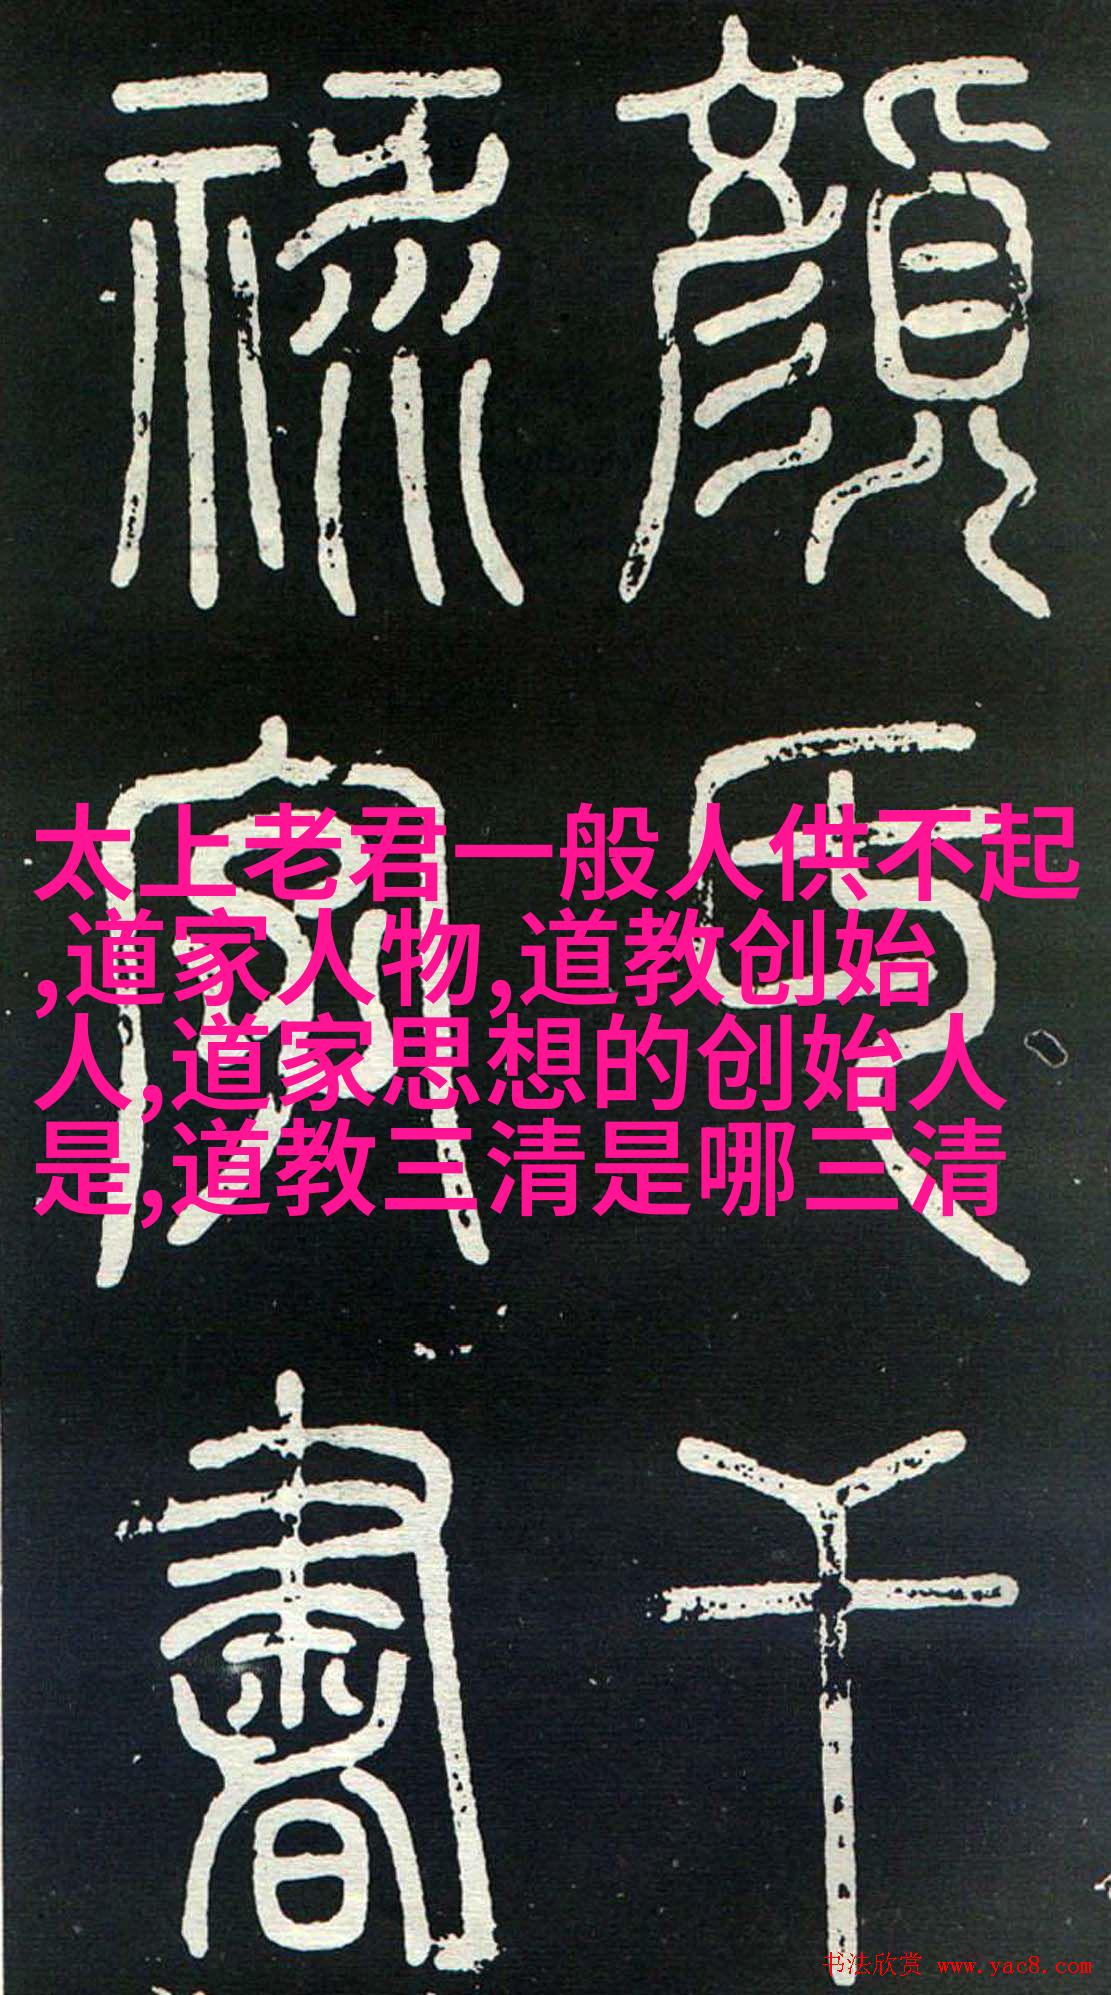 顔氏干
禄字書
太上老君一般人供不起
,道家人物,道教创始
人,道家思想的创始人
是,道教三清是哪三清
书法欣赏 www.yac8.com